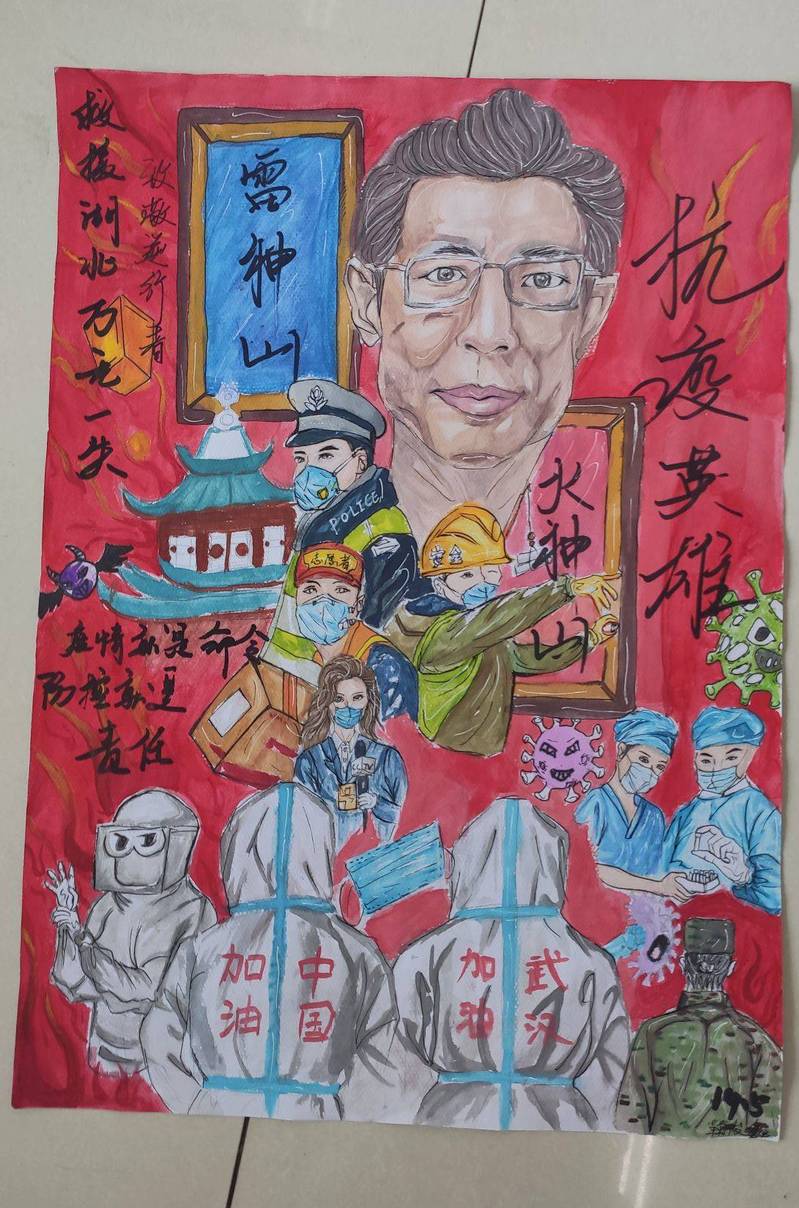 救援湖北万无一失
致敬逆行者
雷神山
抗疫英雄
火神山
POLICE
安全
志愿者
疫情就是命令
防控就是
责任
CCTV
中国
加油
武汉
加油